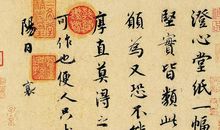 澄心堂紙一幅
堅實皆類此
願為又恐不
厚直莫得之
可作也便人只
陽日襄